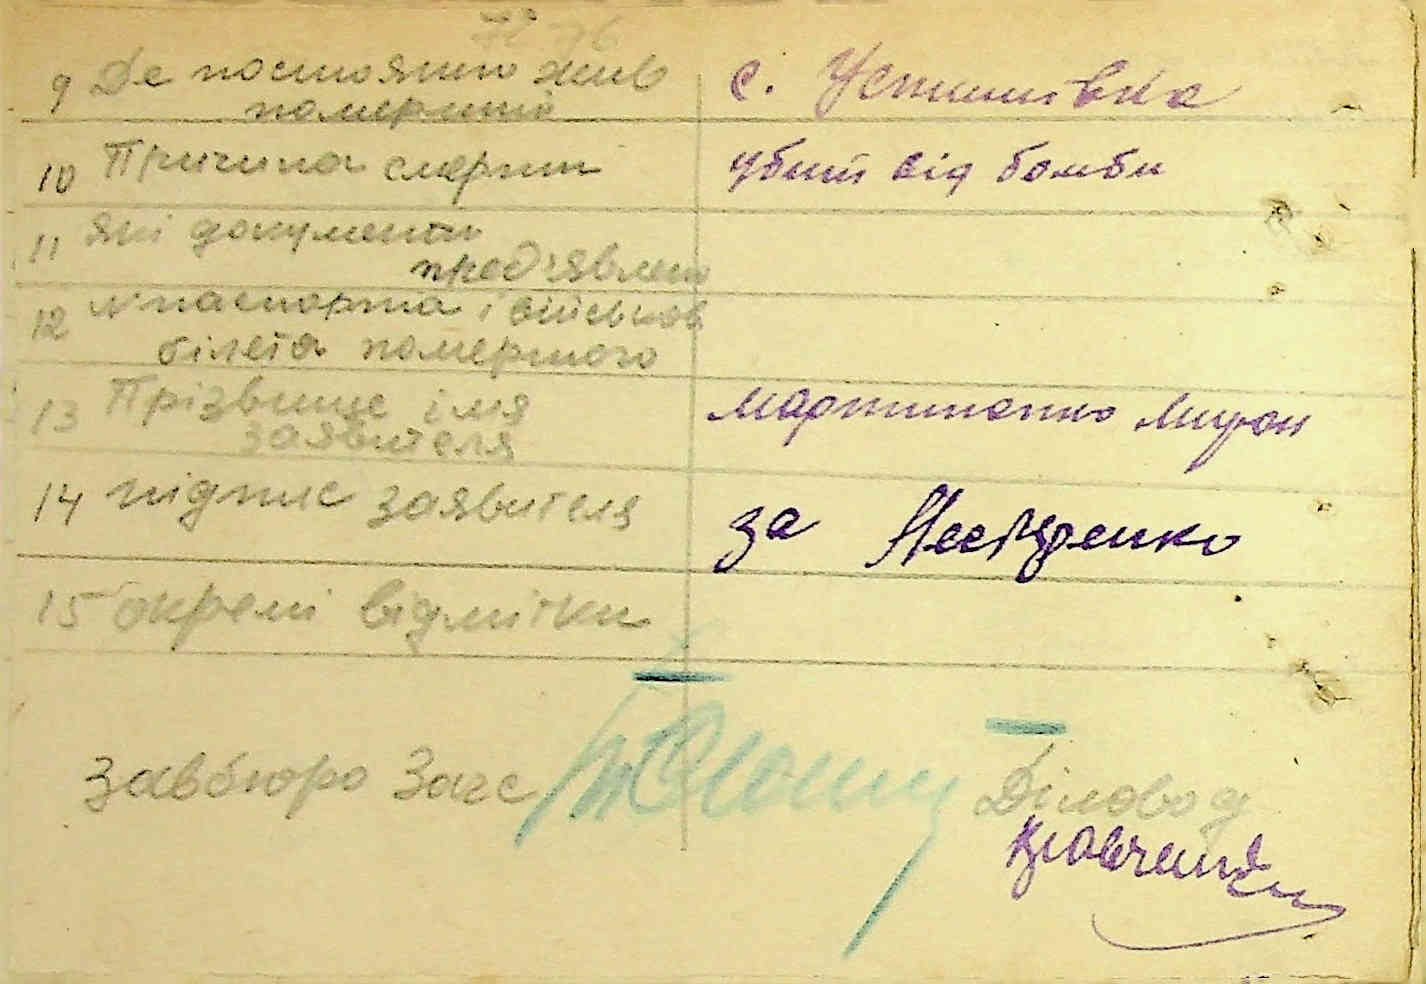 9 Де постоянно жив с. Устинівка
померший
10 Причина смерти убит від бомби
11 які документи
пред'явлено
12 № паспорта і військов
білета помершого
13 Прізвище імя Мартиненко Мирон
заявителя
14 підпис заявителя за
15 окремі відмітки
Завбюро Загс Діловод
Кравченко